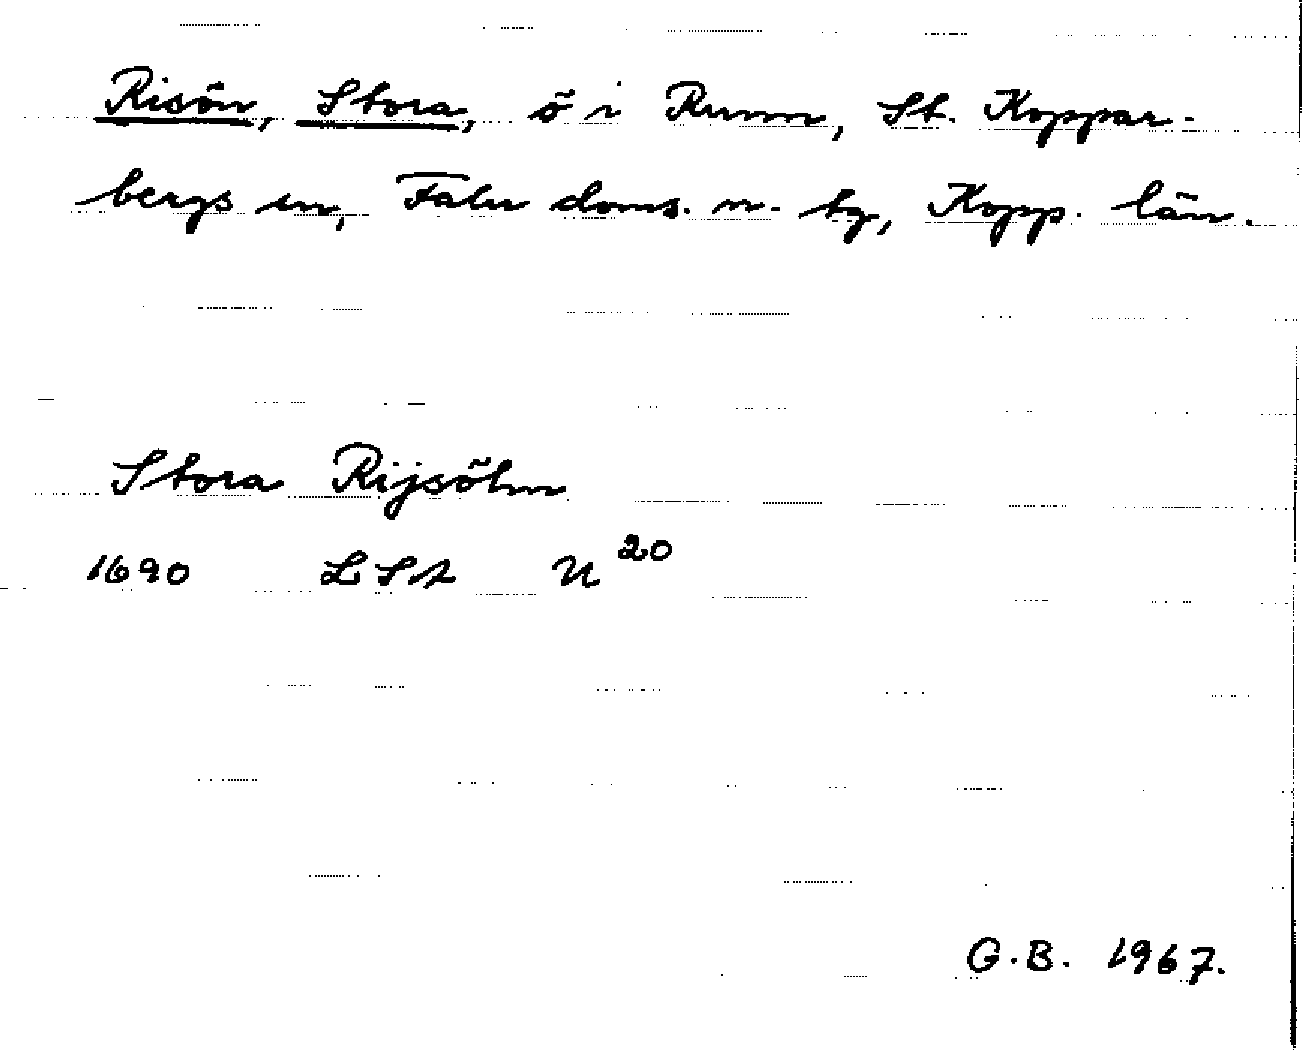 Risön, Stora, ö i Runn, St. Koppar-
bergs sn, Falu doms. n. tg, Kopp. län.
Stora Rijsöhn
1690 LSA U 20
G.B. 1967.